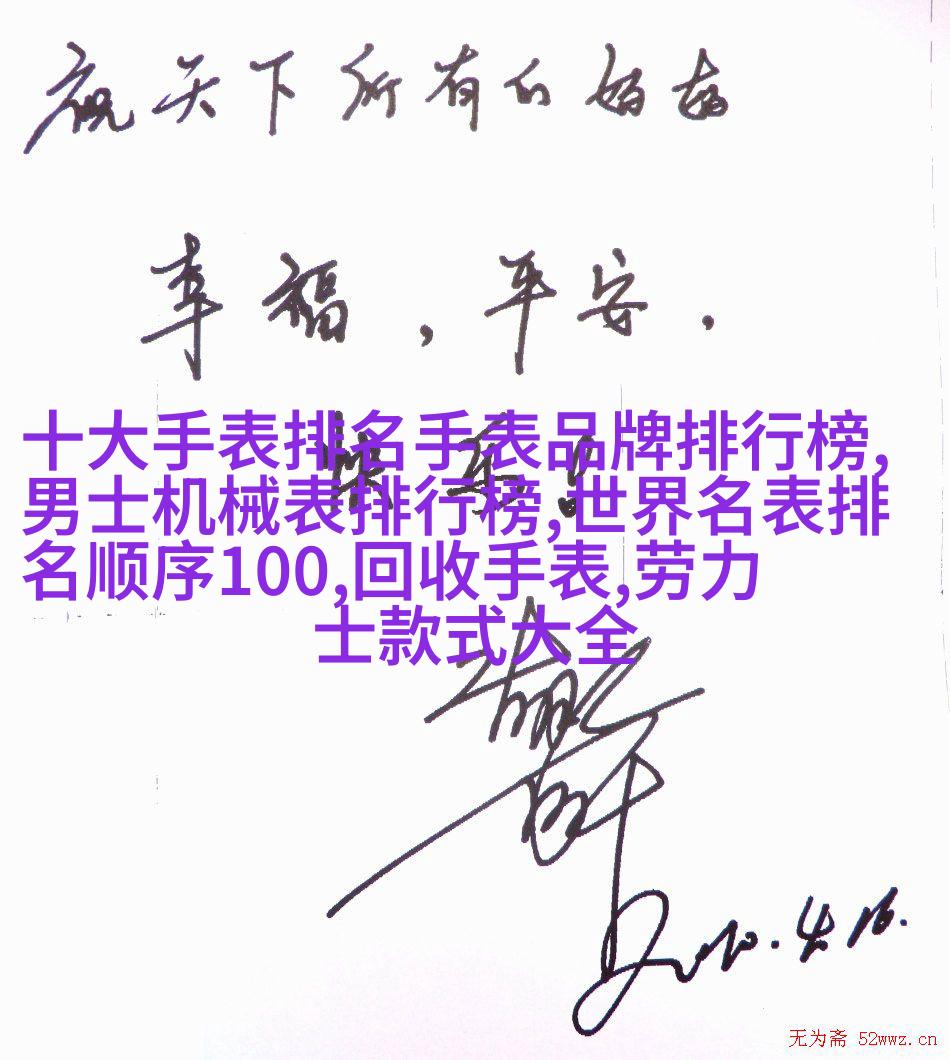 祝天下所有的妈妈
幸福，平安，
快乐！
十大手表排名手表品牌排行榜,
男士机械表排行榜,世界名表排
名顺序100,回收手表,劳力
士款式大全
2010.4.16.
无为斋 52wwz.cn